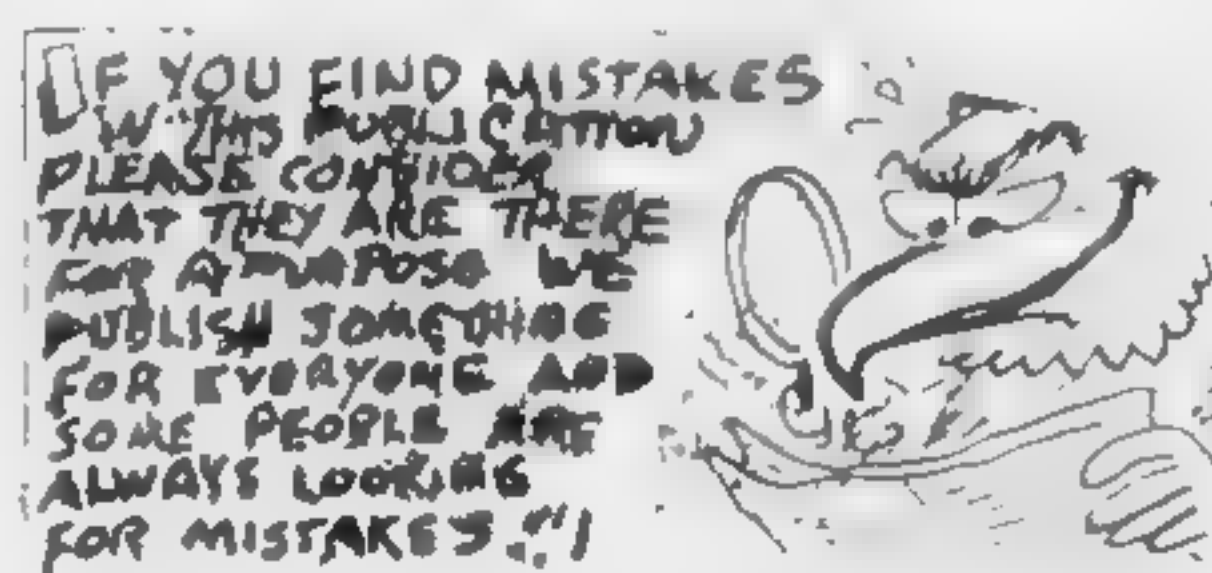 IF YOU FIND MISTAKES
IN THIS PUBLICATION
PLEASE CONSIDER
THAT THEY ARE THERE
FOR A PURPOSE WE
PUBLISH SOMETHING
FOR EVERYONE AND
SOME PEOPLE ARE
ALWAYS LOOKING
FOR MISTAKES.!!!